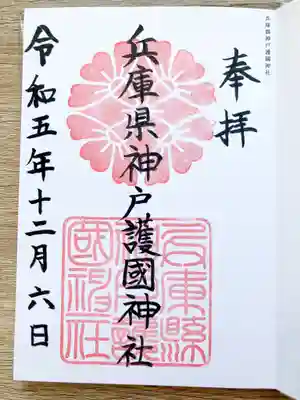 兵庫縣神戸護國神社
奉拝
兵庫県神戸護國神社
令和五年十二月六日
兵庫縣
神戸護
國神社